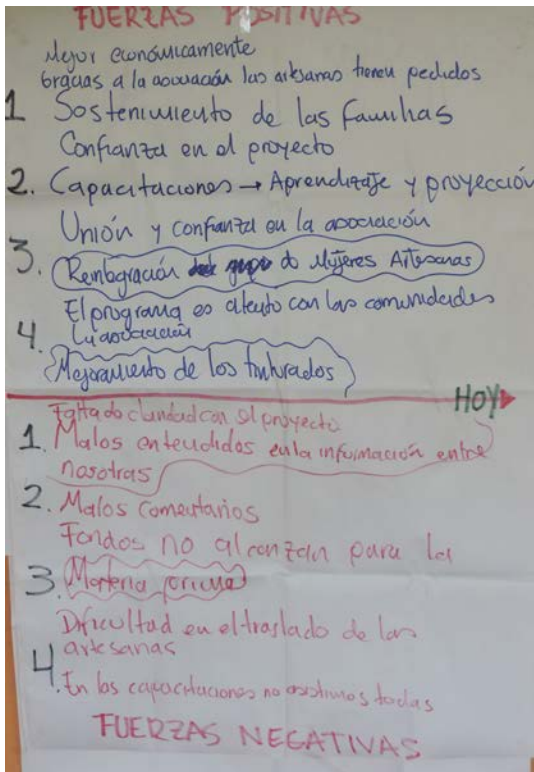 FUERZAS POSITIVAS
Mejor económicamente
Gracias a la asociación las artesanas tienen pedidos
1 Sostenimiento de las familias
Confianza en el proyecto
2. Capacitaciones → Aprendizaje y proyección
Unión y confianza en la asociación
3. Reintegración de Mujeres Artesanas
El programa es atento con las comunidades
4. La asociación
Mejoramiento de los tinturados
HOY
Falta de claridad con el proyecto
1. Malos entendidos en la información entre
nosotras
2. Malos comentarios
Fondos no alcanzan para la
3. Materia prima
Dificultad en el traslado de las
artesanas
4. En las capacitaciones no asistimos todas
FUERZAS NEGATIVAS